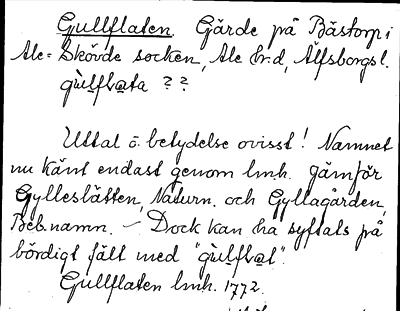 Gullflaten. Gärde på Bästorp i
Ale-Skövde socken, Ale h:d, Älfsborgs l.
gùlflata ??
Uttal o. betydelse ovisst! Namnet
nu känt endast genom lmh. Jämför
Gylleslätten, Naturn. och Gyllagården,
Beb.namn. – Dock kan ha syftats på
bördigt fält med "gùlflat".
Gullflaten lmh. 1772.